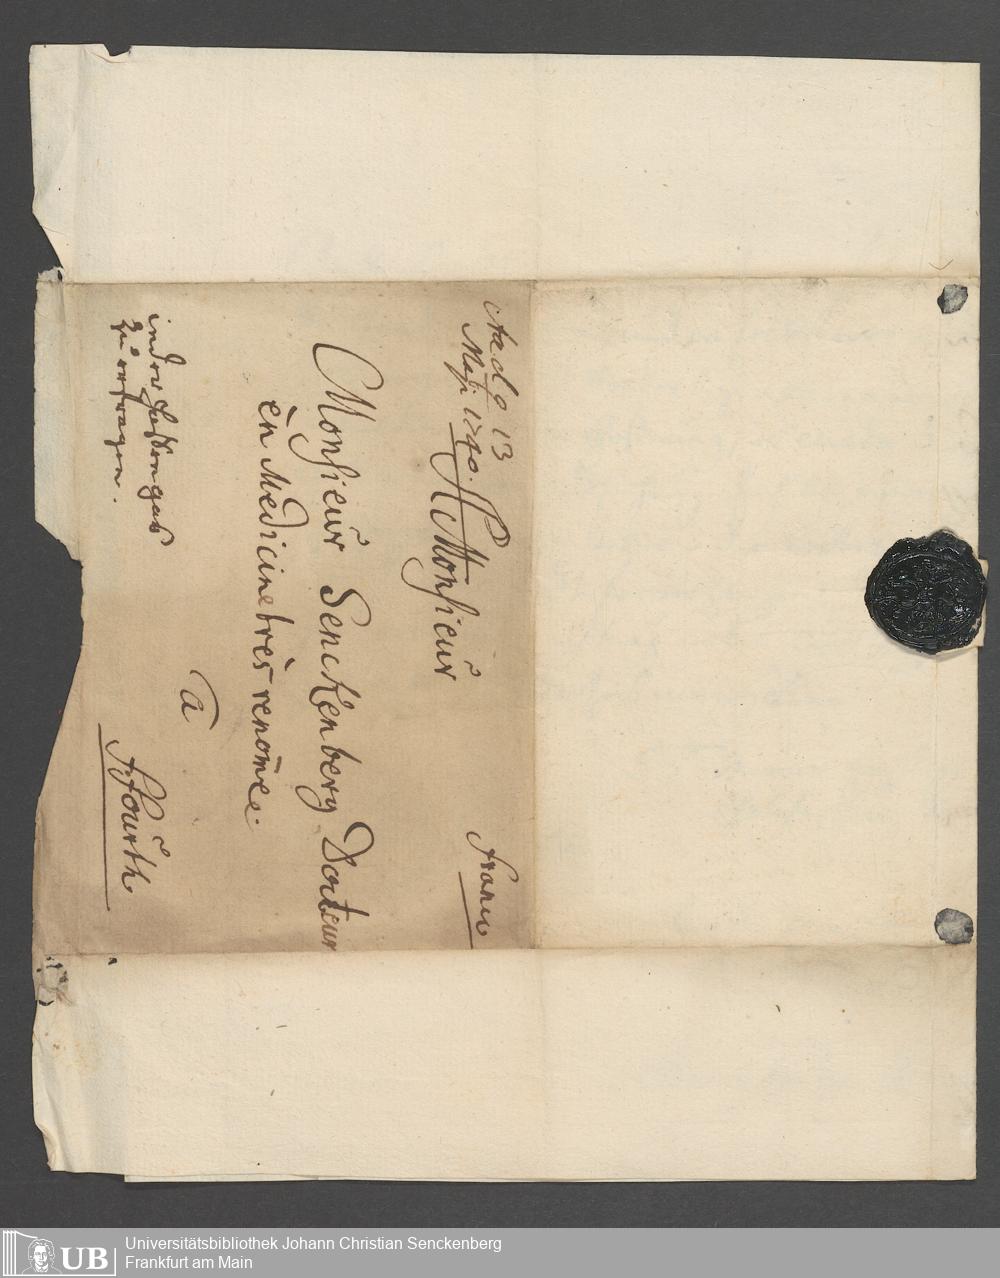 Acc. d. 13
Maji 1740.
A Monsieur
franco
Monsieur Senckenberg Docteur
en Medicine très renomée.
a
Ffourth
in der Hassengaß
zu erfragen.
UB Universitätsbibliothek Johann Christian Senckenberg
Frankfurt am Main